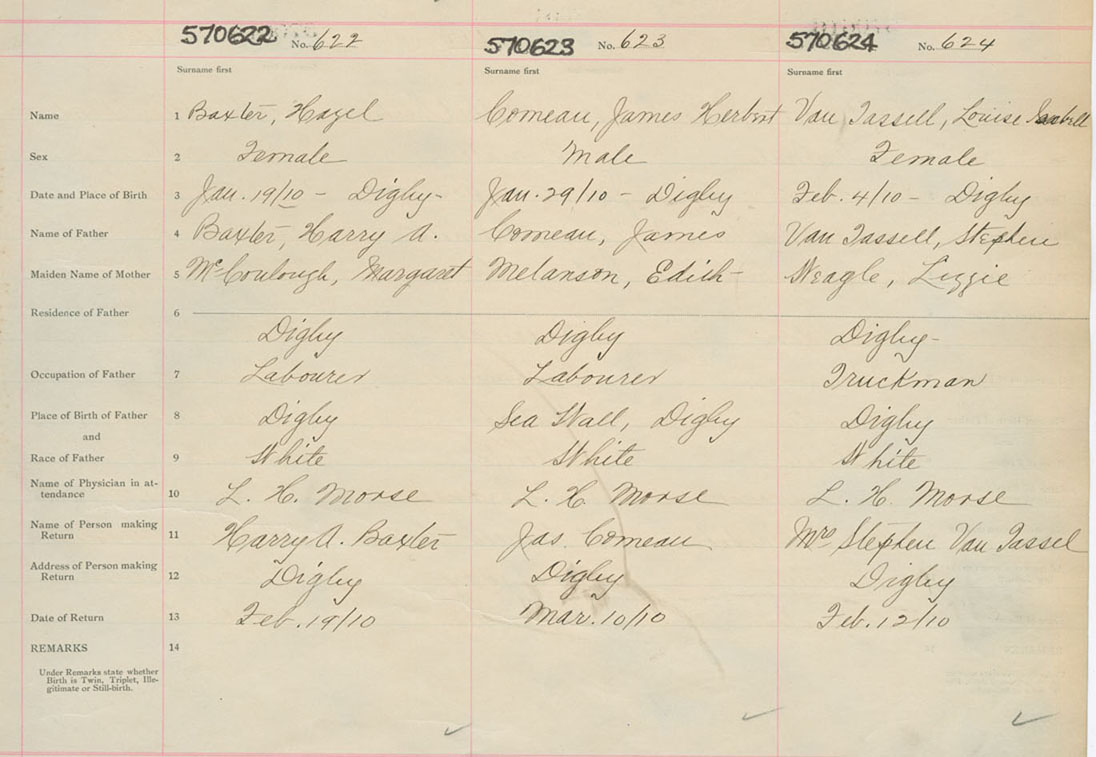 570622 No. 622 570623 No. 623 570624 No. 624
Surname first Surname first Surname first
Name 1 Baxter, Hazel Comeau, James Herbert Van Tassell, Louise
Sex 2 Female Male Female
Date and Place of Birth 3 Jan. 19/10 - Digby- Jan. 29/10 - Digby Feb. 4/10 - Digby
Name of Father 4 Baxter, Harry A. Comeau, James Van Tassell, Stephen
Maiden Name of Mother 5 McCoulough, Margaret Melanson, Edith- Neagle, Lizzie
Residence of Father 6
Digby Digby Digby-
Occupation of Father 7 Labourer Labourer Truckman
Place of Birth of Father 8 Digby Sea Wall, Digby Digby
and
Race of Father 9 White White White
Name of Physician in at-
tendance 10 L. H. Morse L. H. Morse L. H. Morse
Name of Person making
Return 11 Harry A. Baxter Jas. Comeau Mrs Stephen Van Tassel
Address of Person making
Return 12 Digby Digby Digby
Date of Return 13 Feb. 19/10 Mar. 10/10 Feb. 12/10
REMARKS 14
Under Remarks state whether
Birth is Twin, Triplet, Ille-
gitimate or Still-birth.